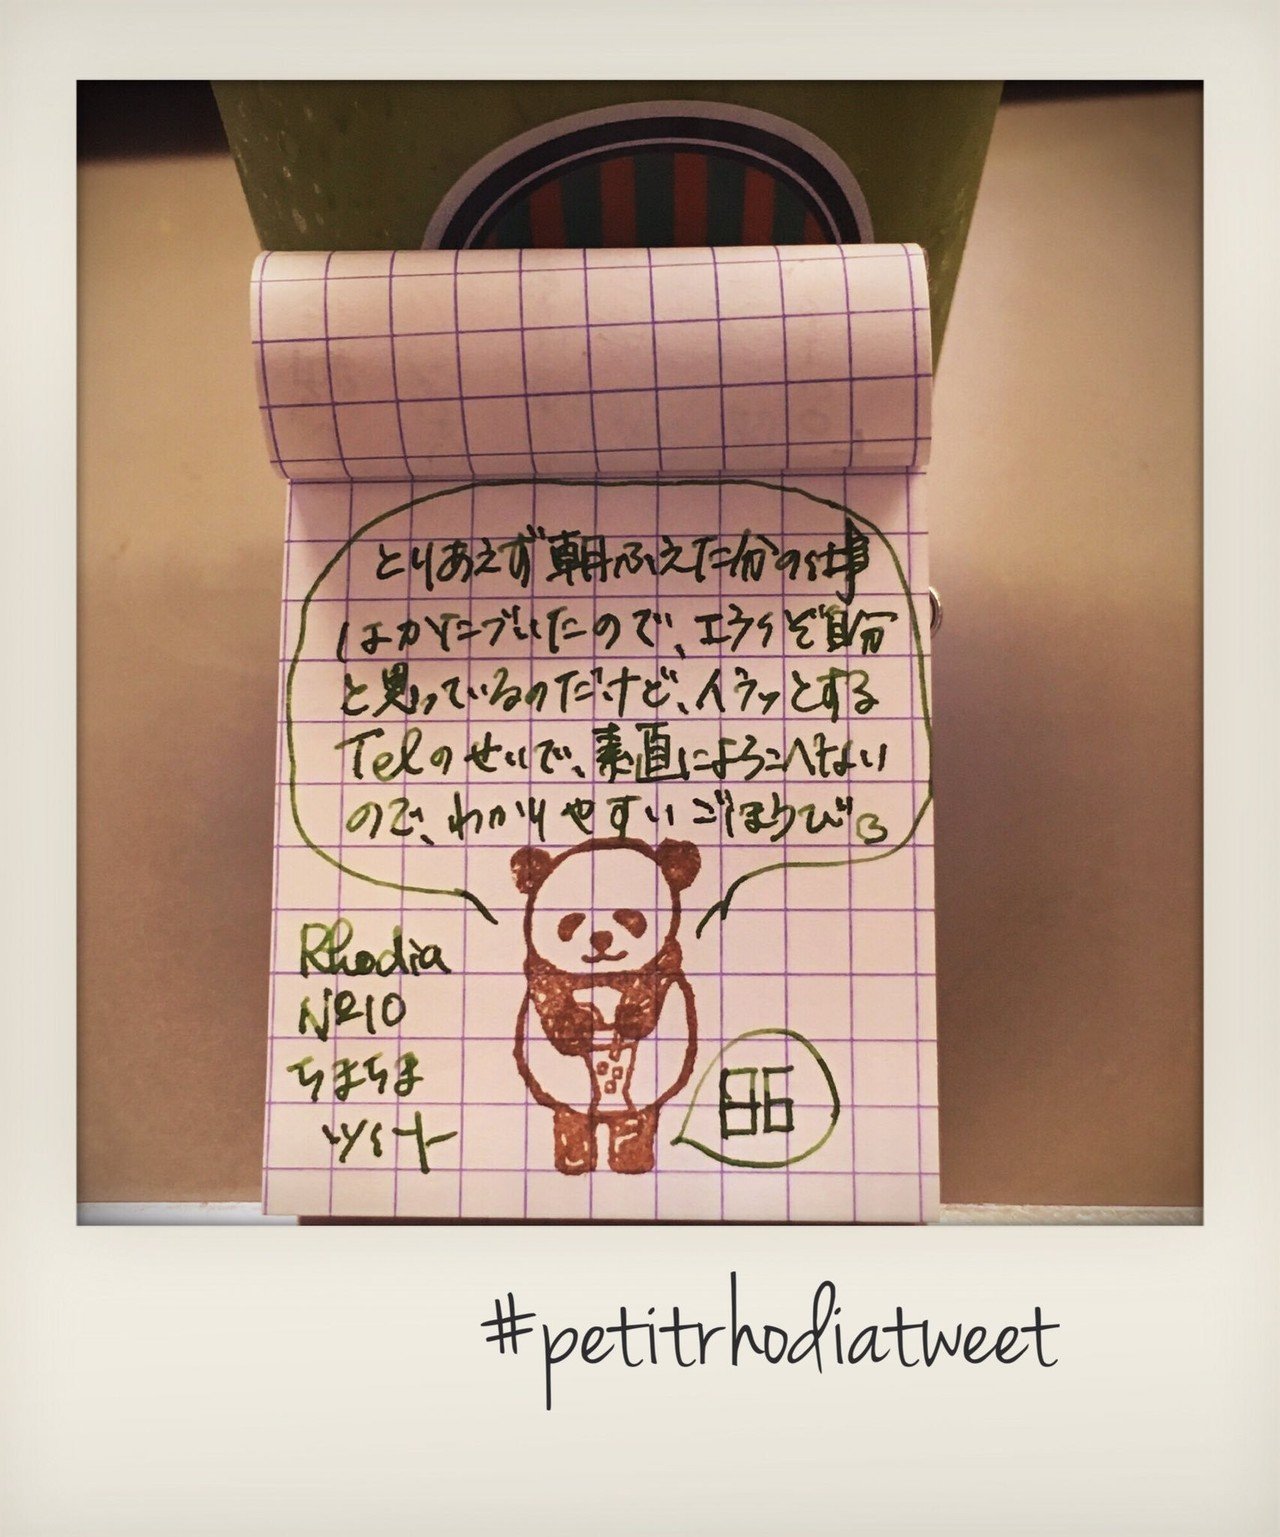 とりあえず朝ふえた分の仕事
はかたづいたので、エライぞ自分
と思っているのだけど、イラッとする
Telのせいで、素直によろこべない
ので、わかりやすいごほうび
Rhodia
No10
ちまちま
ツイート
86
#petitrhodiatweet